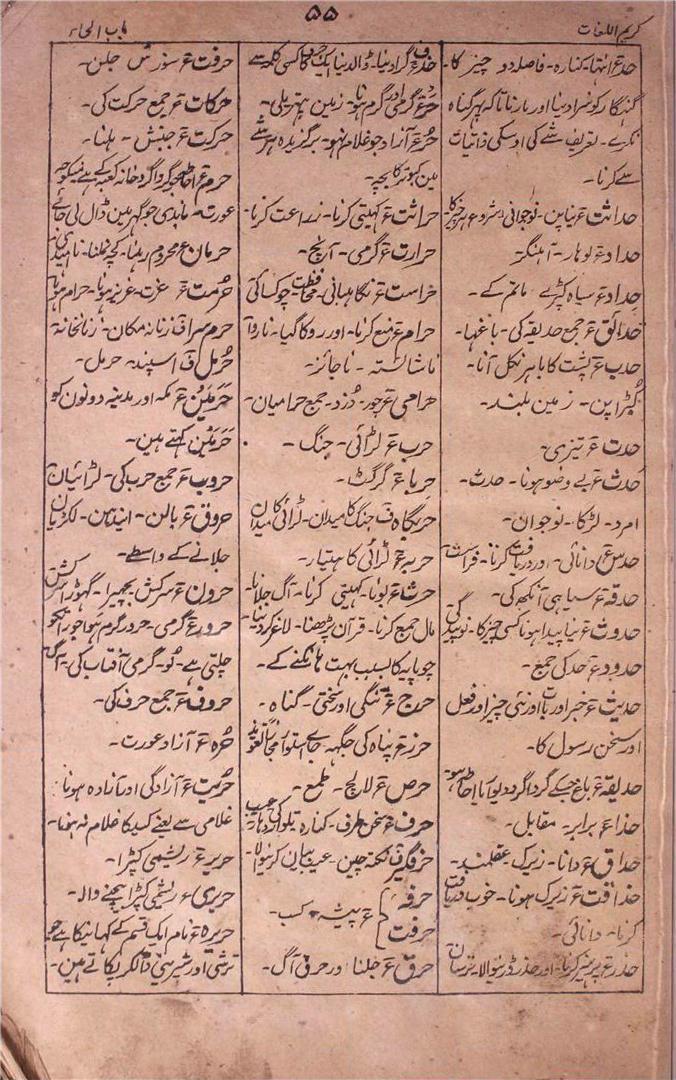 کریم اللغات
۵۵
باب الحاء
حد ع انتہا۔ کنارہ۔ فاصلہ دو چیز کا۔
گنہگار کو سزا دینا اور مارنا تاکہ پھر گناہ
نکرے۔ تعریف شے کی اوسکی ذاتیات
سے کرنا۔
حداثت ع نیاپن۔ نوجوانی۔ شروع ہر چیز کا
حداد ع لوہار۔ آہنگر
حداد ع سیاہ کپڑے ماتم کے۔
حدائق ع جمع حدیقہ کی۔ باغہا۔
حدب ع پشت کا باہر نکل آنا۔
کبڑاپن۔ زمین بلند۔
حدت ع تیزی۔
حدث ع بے وضو ہونا۔ حدث۔
امرد۔ لڑکا۔ نوجوان۔
حدس ع دانائی۔ اور دریافت کرنا۔ فراست
حدقہ ع سیاہی آنکھ کی۔
حدوث ع نیا پیدا ہونا کسی چیز کا۔ نوپیدگی
حدود ع حد کی جمع۔
حدیث ع خبر اور بات اور نئی چیز اور فعل
اور سخن رسول کا۔
حدیقہ ع باغ جسکے گرداگرد دیوار یا احاطہ ہو
حذا ع برابر۔ مقابل۔
حذاق ع دانا۔ زیرک۔ عقلمند۔
حذاقت ع زیرک ہونا۔ خوب دریافت
کرنا۔ دانائی۔
حذر ع پرہیز کرنا۔ اور حذر ڈرنیوالا۔ ترسان
حذف ع گرا دینا۔ ڈالدینا ایک حرف کا کسی کلمہ سے
حر ع گرمی اور گرم ہونا۔ زمین پتھریلی۔
حر ع آزاد جو غلام نہو۔ برگزیدہ ہر شے
مین کبوتر کا بچہ۔
حراثت ع کھیتی کرنا۔ زراعت کرنا۔
حرارت ع گرمی۔ آنچ۔
حراست ع نگاہبانی۔ محافظت چوکسائی
حرام ع منع کرنا۔ اور روکا گیا۔ ناروا
ناشائستہ۔ ناجائز۔
حرامی ع چور۔ دزد۔ جمع حرامیان۔
حرب ع لڑائی۔ جنگ۔
حربا ع گرگٹ۔
حربگاہ ف جنگ کا میدان۔ لڑائی کا میدان
حربہ ع لڑائی کا ہتیار۔
حرث ع بونا۔ کھیتی کرنا۔ آگ جلانا۔
مال جمع کرنا۔ قرآن پڑھنا۔ لاغر کر دینا
چوپایہ کا بسبب بہت ہانکنے کے۔
حرج ع تنگی اور سختی۔ گناہ۔
حرز ع پناہ کی جگہہ جاے استوار مجازاً تعویذ
حرص ع لالچ۔ طمع۔
حرف ع سخن طرف۔ کنارہ تلوار کی دہار۔ عیب
حرفگیر ف نکتہ چین۔ عیب بیان کرنیوالا
حرفہ
حرفت
ع پیشہ۔ کسب۔
حرق ع جلنا اور حرق آگ۔
حرقت ع سوزش جلن۔
حرکات ع جمع حرکت کی۔
حرکت ع جنبش۔ ہلنا۔
حرم ع احاطہ جو گرداگرد خانہ کعبہ کے ہے منکوحہ
عورت۔ باندی جو گھر مین ڈال لی جائے
حرمان ع محروم رہنا۔ کچھ نملنا۔ ناامیدی
حرمت ع عزت۔ عزیز ہونا۔ حرام ہونا
حرم سرا ف زنانہ مکان۔ زنانخانہ
حرمل ف اسپند۔ حرمل۔
حرمین ع مکہ اور مدینہ دونون کو
حرمین کہتے ہین۔
حروب ع جمع حرب کی۔ لڑائیان
حروق ع بالن۔ ایندھن۔ لکڑیان
جلانے کے واسطے۔
حرون ع سرکش بچھیرا۔ گھوڑا سرکش
حرور ع گرمی۔ حرور گرم ہوا جو رات کو
چلتی ہے۔ لو۔ گرمی آفتاب کی۔ آگ
حروف ع جمع حرف کی۔
حرہ ع آزاد عورت۔
حریت ع آزادگی اور آزادہ ہونا
غلامی سے یعنے کسیکا غلام نہ ہونا۔
حریر ع ریشمی کپڑا۔
حریری ع ریشمی کپڑا بیچنے والہ۔
حریرہ ع نام ایک قسم کے کھانیکا ہے جو
ترشی اور شیرینی ڈالکر پکاتے ہین۔